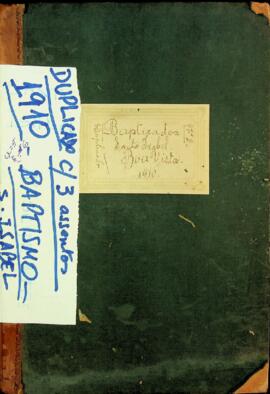 DUPLICADO C/ 3 assentos
1910 BAPTISMO
S. ISABEL
Baptizados
Santa Isabel
Boa Vista.
1910